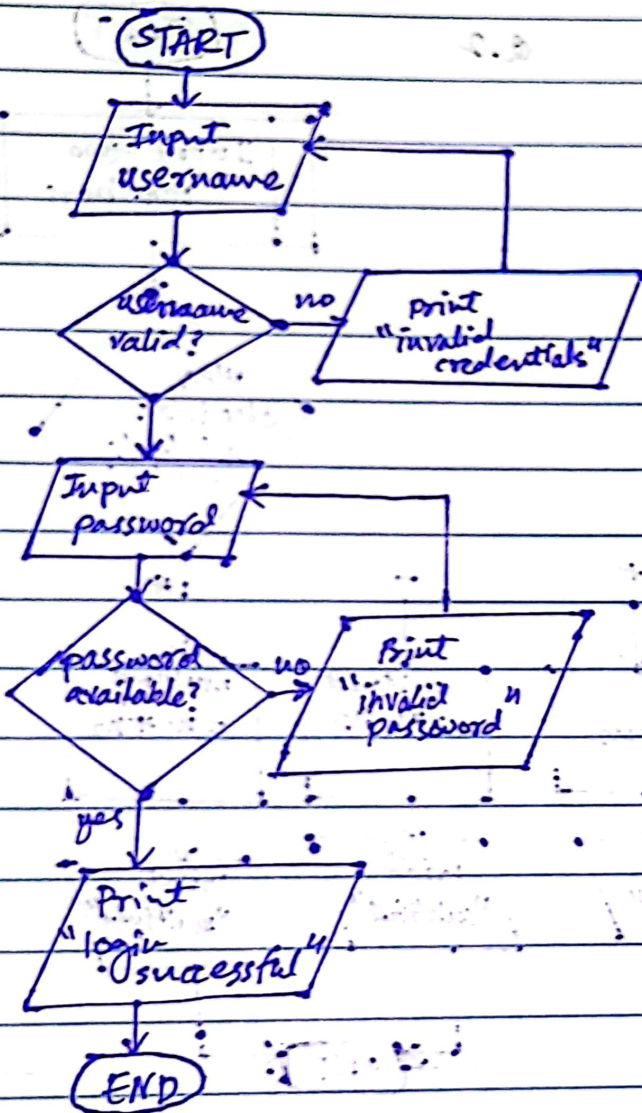 START
Input
username
username
valid?
no
print
"invalid
credentials"
Input
password
password
available?
no
Print
"invalid
password"
yes
Print
"login
successful"
END